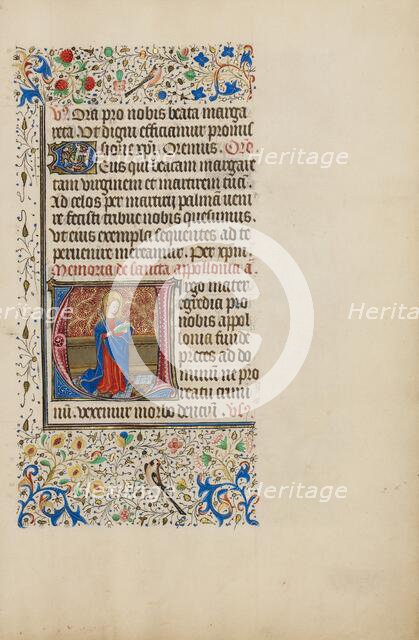 V̄. Ora pro nobis beata marga
reta Ut digni efficiamur promis
sione xpi Oremus. Oro
Deus qui beatam margare
tam virginem et martirem tuā.
Ad celos per martirii palmam veni
re fecisti tribue nobis quesumus.
Ut eius exempla sequentes ad te
peruenire mereamur. Per xpm̄.
Memoria de sancta appollonia a
Virgo mater
egredia pro
nobis appol
lonia fun de
preces ad do
minum ne pro
reatu crimi
nū. vexemur morbo denciū. Vs.
Heritage Heritage Heritage
Heritage Heritage Heritage
Heritage Heritage Heritage